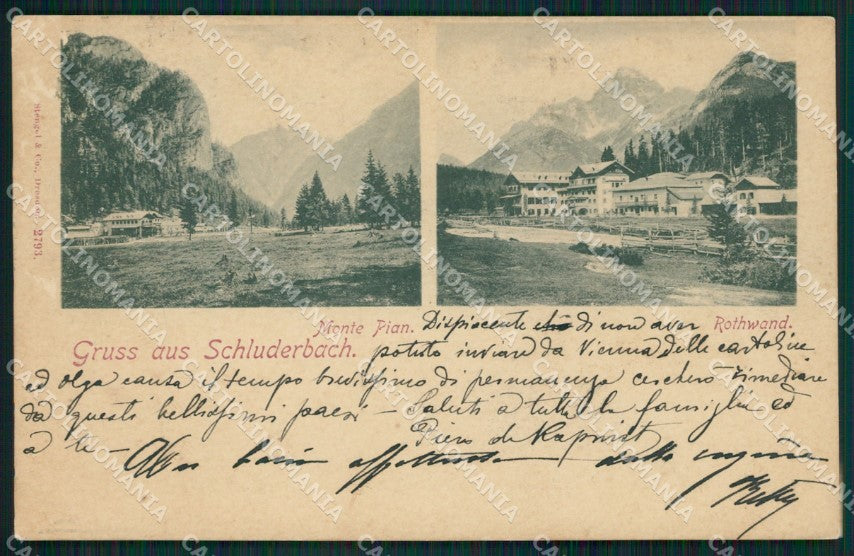 Stengel & Co., Dresden 2793.
Monte Pian.
Rothwand.
Gruss aus Schluderbach.
Dispiacente di non aver
potuto inviare da Vienna delle cartoline
ed olga causa il tempo brevissimo di permanenza cercherò rimediare
da questi bellissimi paesi – Saluti a tutta la famiglia ed
a te – Piero de Kapnist
CARTOLINOMANIA